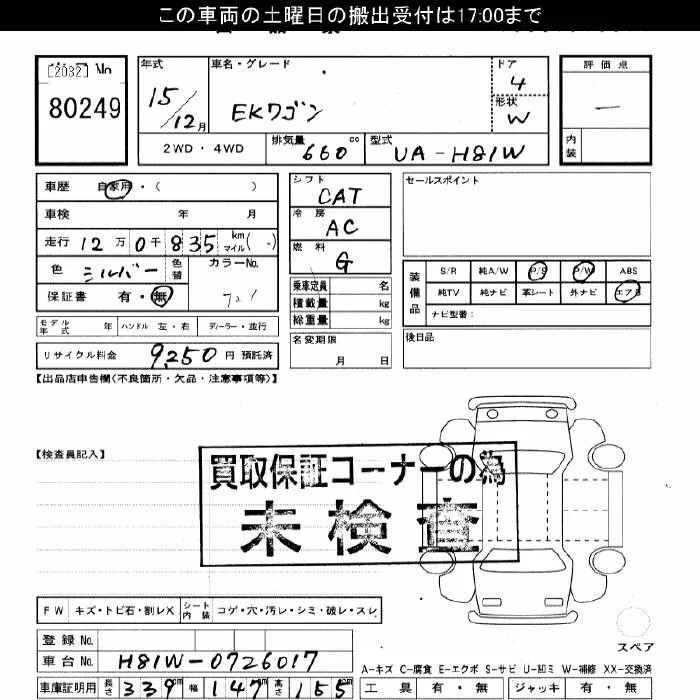 この車両の土曜日の搬出受付は17:00まで
[2032] No
80249
年式
15/12月
車名・グレード
EKワゴン
ドア
4
形状
W
評価点
―
内装
2WD・4WD
排気量
660 cc
型式
UA-H81W
車歴 自家用・( )
車検 年 月
走行 12万0千835 km マイル( )
色 シルバー 色替
カラーNo.
保証書 有・無
モデル年式 年 ハンドル 左・右 ディーラー・並行
リサイクル料金 9,250 円 預託済
シフト
CAT
冷房
AC
燃料
G
乗車定員 名
積載量 kg
総重量 kg
名変期限
月 日
セールスポイント
装備品
S/R 純A/W P/S P/W ABS
純TV 純ナビ 革シート 外ナビ エアB
ナビ型番:
後日品
【出品店申告欄(不良箇所・欠品・注意事項等)】
【検査員記入】
買取保証コーナーの為
未検査
FW キズ・トビ石・割レX シート内装 コゲ・穴・汚レ・シミ・破レ・スレ
登録No.
車台No. H81W-0726017
車庫証明用 長さ 339cm 幅 147cm 高さ 155cm
スペア
A-キズ C-腐食 E-エクボ S-サビ U-凹ミ W-補修 XX-交換済
工具 有・無 ジャッキ 有・無